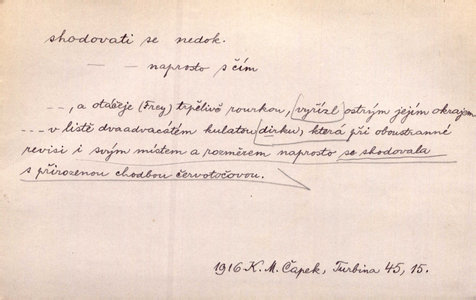 shodovati se nedok.
— — naprosto s čím
---, a otáčeje (Frey) trpělivě rourkou, vyřízl ostrým jejím okrajem
--- v listě dvaadvacátém kulatou dírku, která při oboustranné
revisi i svým místem a rozměrem naprosto se shodovala
s přirozenou chodbou červotočovou.
1916 K. M. Čapek, Turbina 45, 15.